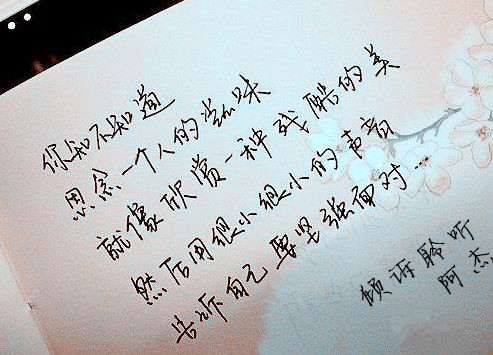 你知不知道
思念一个人的滋味
就像欣赏一种残酷的美
然后用很小很小的声音
告诉自己要坚强面对…
倾诉聆听
阿杰